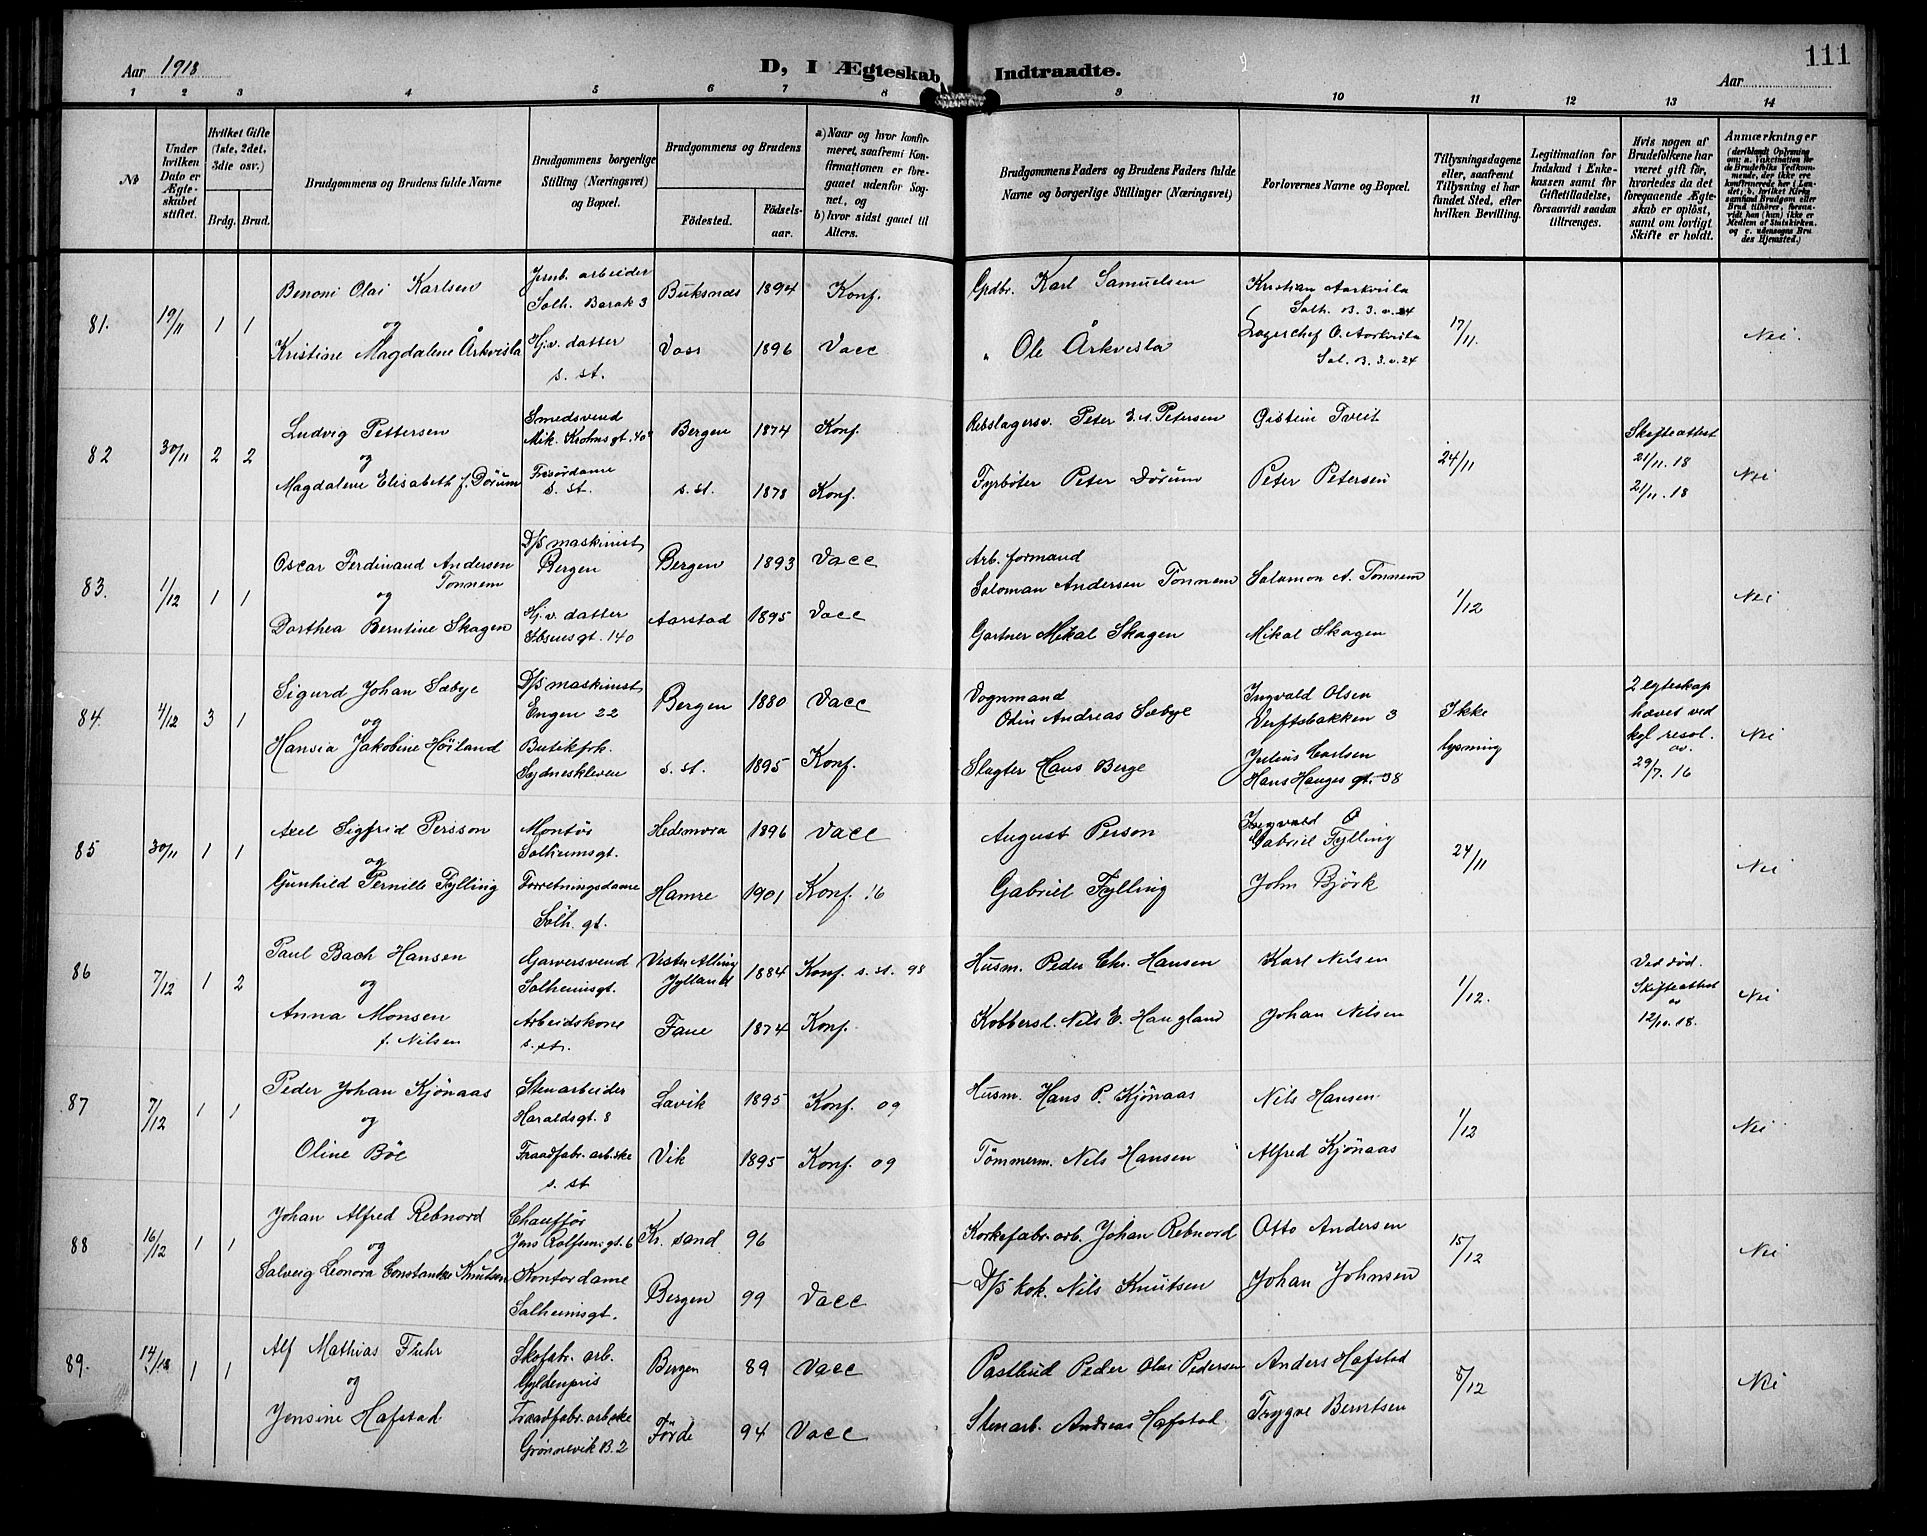 Aar 1918
D, I Ægteskab Indtraadte.
111
Aar
1 2 3 4 5 6 7 8 9 10 11 12 13 14
№
Under hvilken Dato er Ægteskabet stiftet.
Hvilket Gifte (1ste, 2det, 3die osv.)
Brdg. Brud.
Brudgommens og Brudens fulde Navne
Brudgommens borgerlige Stilling (Næringsvei) og Bopæl.
Brudgommens og Brudens
Fødested.
Fødselsaar.
a) Naar og hvor konfirmeret, saafremt Konfirmationen er foregaaet udenfor Sognet, og
b) hvor sidst gaaet til Alters.
Brudgommens Faders og Brudens Faders fulde Navne og borgerlige Stillinger (Næringsvei)
Forlovernes Navne og Bopæl.
Tillysningsdagene eller, saafremt Tillysning ei har fundet Sted, efter hvilken Bevilling.
Legitimation for Indskud i Enkekassen samt for Giftetilladelse, forsaavidt saadan tiltrænges.
Hvis nogen af Brudefolkene har været gift før, hvorledes da det foregaaende Ægteskab er opløst, samt om lovligt Skifte er holdt.
Anmærkninger
(deriblandt Oplysning om: a. Vakcination for de Brudefolks Vedkommende, der ikke ere konfirmerede her i Landet; b. hvilket Kirkesamfund Brudgom eller Brud tilhører, forsaavidt han (hun) ikke er Medlem af Statskirken, og c. udensogns Brudes Hjemsted.)
81. 19/11 1 1
Benoni Olai Karlsen
og
Kristine Magdalene Årkvisla
Jernb. arbeider
Solh. Barak 3
Hj.v. datter
s. st.
Buksnes 1894 Konf.
Voss 1896 Vacc
Grdbr. Karl Samuelsen
" Ole Årkvisla
Kristian Aarkvisla
Solh. B. 3. v. 24
Lagerchef O. Aarkvisla
Sol. B. 3. v. 24
17/11.
Nei.
82 30/11 2 2
Ludvig Pettersen
og
Magdalene Elisabeth f. Dørum
Smedsvend
Mik. Krohnsgt. 40
Frisørdame
s. st.
Bergen 1874 Konf.
s. st. 1878 Konf.
Rebslagersv. Peter Petersen
Fyrbøter Peter Dørum
Gistein Tveit
Peter Petersen
24/11
Skifteattest
21/11. 18
21/11. 18
Nei
83. 1/12 1 1
Oscar Ferdinand Andersen
Tonnem
og
Dorthea Berntine Skagen
D/S maskinist
Bergen
Hj.v. datter
Ibsensgt. 140
Bergen 1893 Vacc
Aarstad 1895 Vacc
Arb. formand
Saloman Andersen Tonnem
Gartner Mikal Skagen
Salomon A. Tonnem
Mikal Skagen
1/12
Nei
84. 4/12 3 1
Sigurd Johan Sæbye
og
Hansia Jakobine Høiland
D/S maskinist
Engen 22
Butikfrk.
Sydneskleven
Bergen 1880 Vacc
s. st. 1895 Konf.
Vognmand
Odin Andreas Sæbye
Slagter Hans Berge
Ingvald Olsen
Verftsbakken 3
Julius Carlsen
Hans Hauges gt. 38
Ikke
lysning
2 egteskap
hævet ved
kgl resol.
av.
29/7. 16
Nei
85 30/11 1 1
Axel Sigfrid Persson
og
Gunhild Pernille Fylling
Montør
Solheimsgt.
Forretningsdame
Solh. gt.
Hedemora 1896 Vacc
Hamre 1901 Konf. 16
August Person
Gabriel Fylling
Ingvald O
Gabriel Fylling
John Björk
24/11
Nei
86 7/12 1 2
Paul Bach Hansen
og
Anna Monsen
f. Nilsen
Garversvend
Solheimsgt.
Arbeidskone
s. st.
Vester Alling
Jylland 1884 Konf. s. st. 98
Fane 1874 Konf.
Husm. Peder Chr. Hansen
Kobbersl. Nils E. Haugland
Karl Nilsen
Johan Nilsen
1/12.
Ved død.
Skifteattest
av
12/10. 18.
Nei
87 7/12 1 1
Peder Johan Kjønaas
og
Oline Bøe
Stenarbeider
Haraldsgt. 8
Traadfabr. arb.ske
s. st
Lavik 1895 Konf. 09
Vik 1895 Konf. 09
Husm. Hans P. Kjønaas
Tømmerm. Nils Hansen
Nils Hansen
Alfred Kjønaas
1/12
Nei
88 16/12 1 1
Johan Alfred Rebnord
og
Solveig Leonora Constantse Knutsen
Chauffør
Jens Rolfsensgt. 6
Kontordame
Solheimsgt.
Kr. sand 96
Bergen 99 Vacc
Korkefabr. arb. Johan Rebnord
D/S kok. Nils Knutsen
Otto Andersen
Johan Johnsen
15/12
Nei
89. 14/12 1 1
Alf Mathias Fuhr
og
Jensine Hafstad
Skofabr. arb.
Gyldenpris
Traadfabr. arb.ske
Grønnevik B. 2
Bergen 89 Vacc
Førde 94 Vacc
Postbud Peder Olai Pedersen
Stenarb. Andreas Hafstad
Anders Hafstad
Trygve Berntsen
8/12
Nei